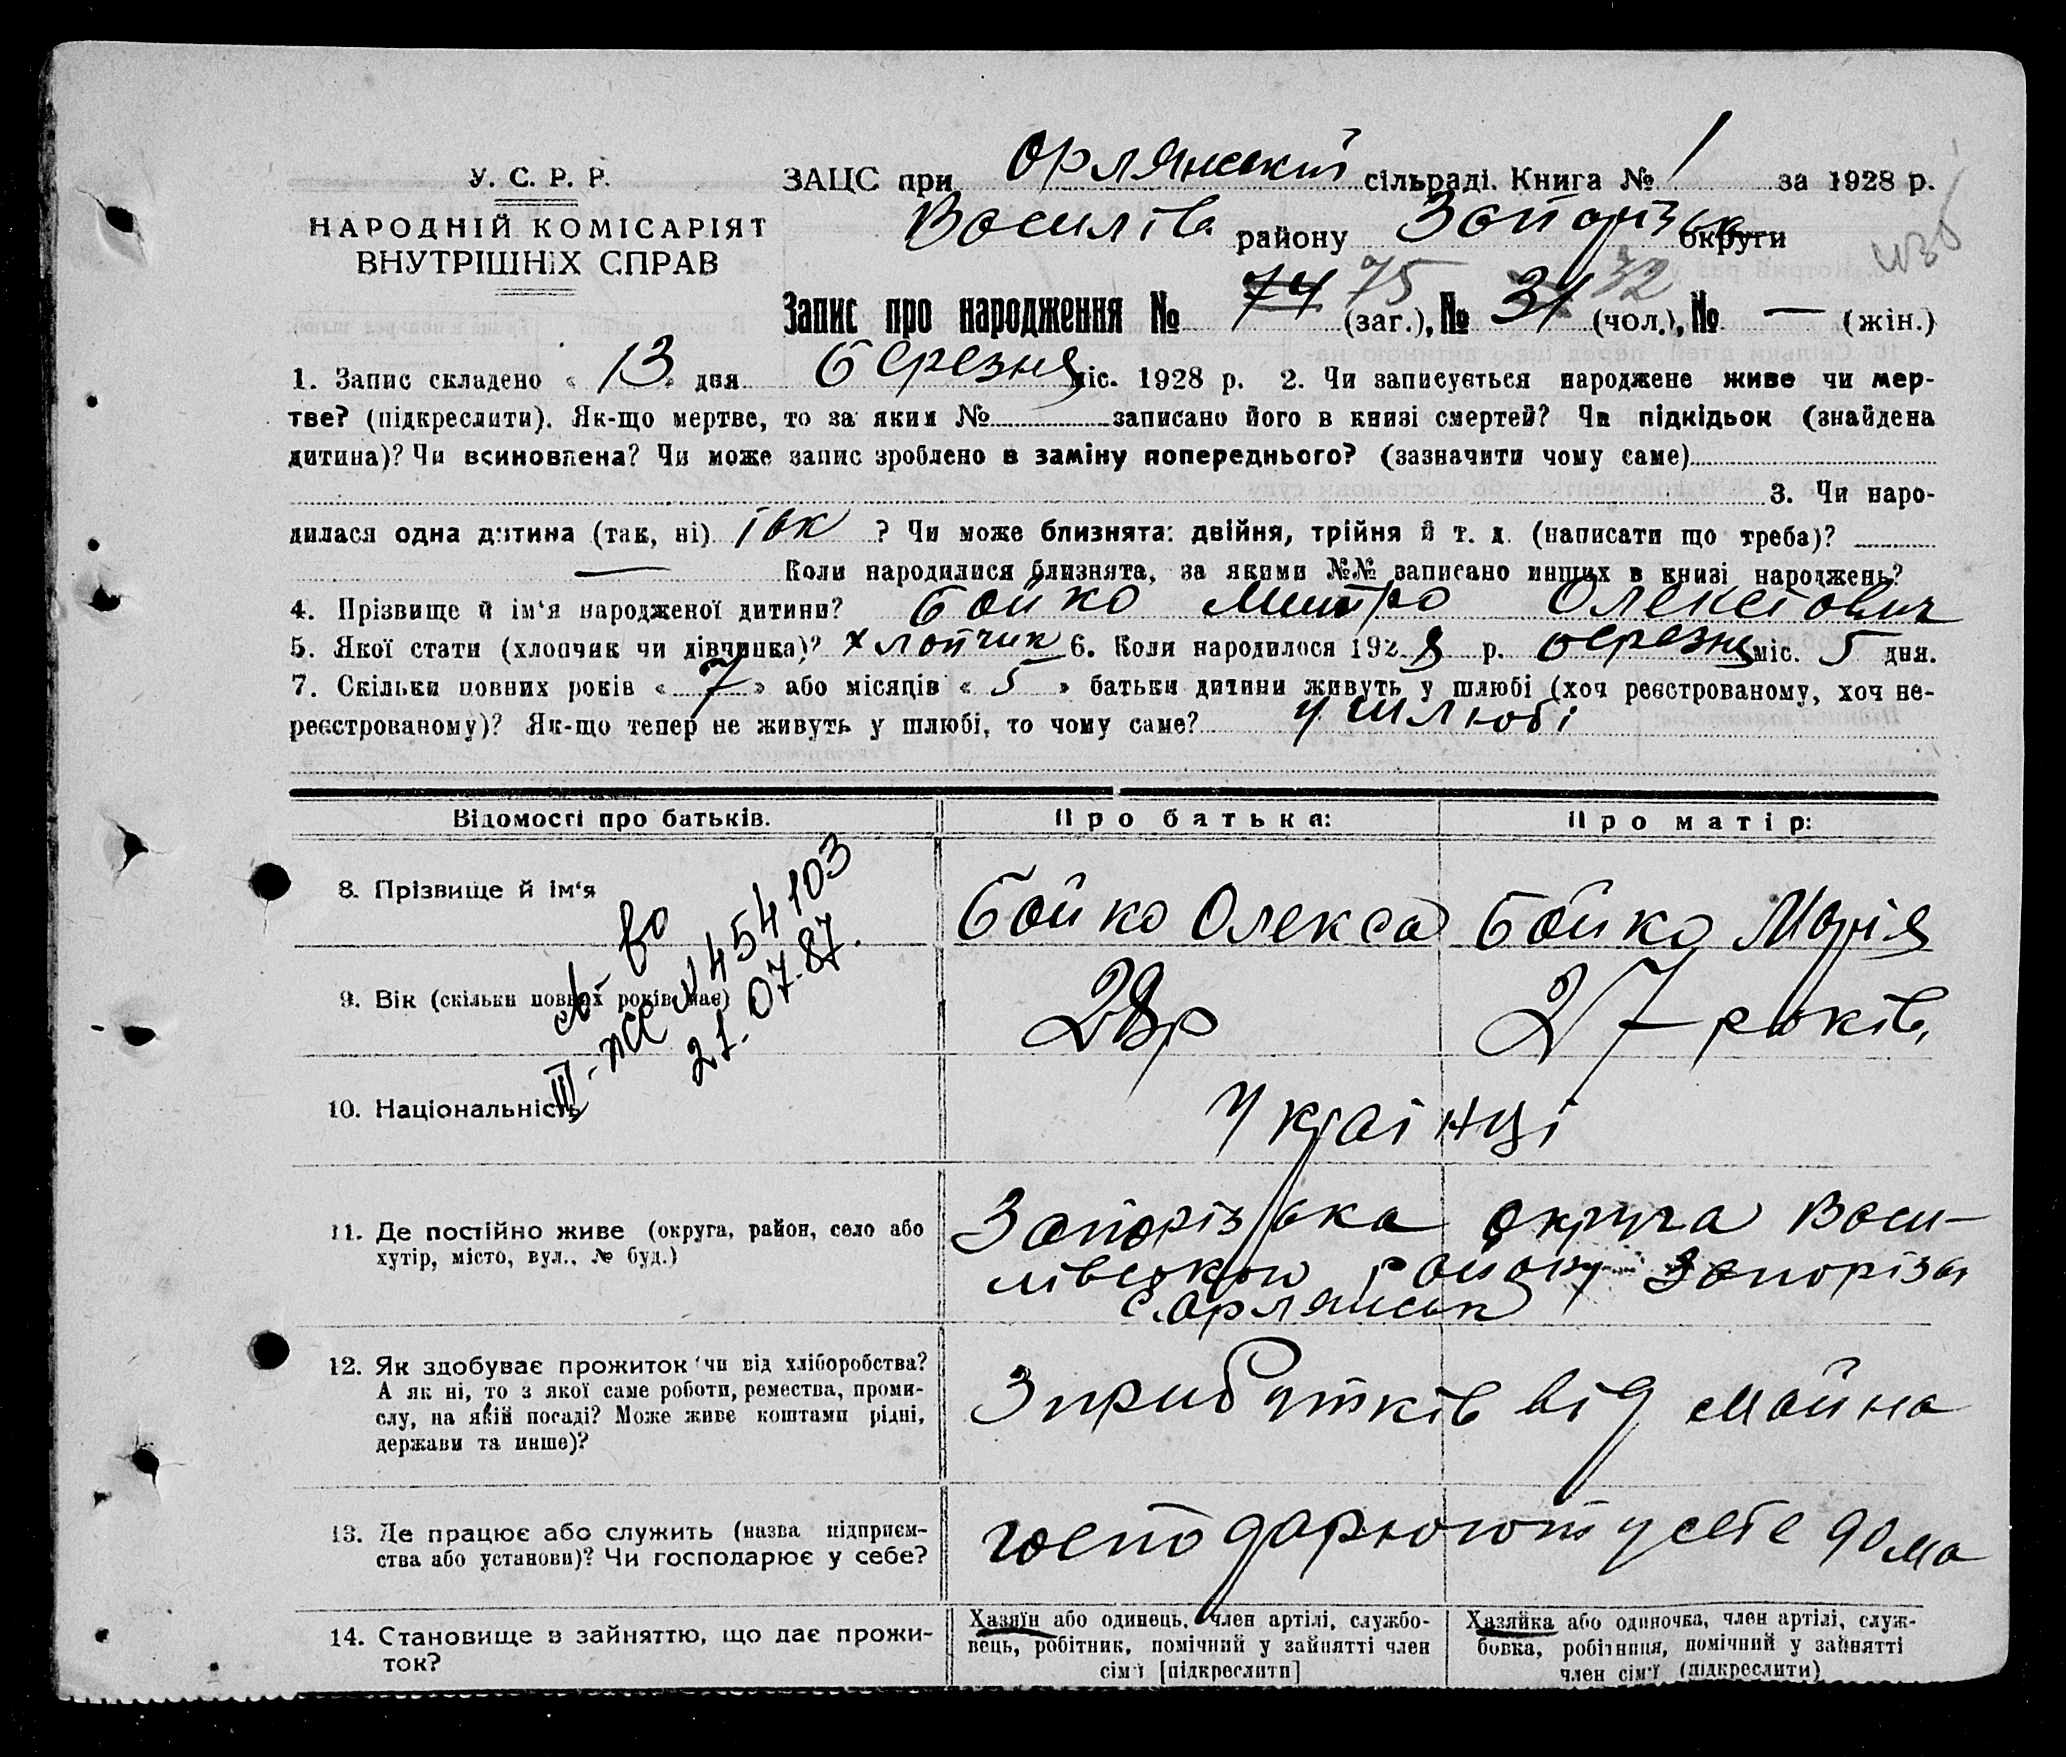 У. С. Р. Р.
НАРОДНІЙ КОМІСАРІЯТ
ВНУТРІШНІХ СПРАВ
ЗАЦС при Орлянській сільраді. Книга № 1 за 1928 р.
Василів. району Запорізьк округи
Запис про народження № 74 75 (заг.), № 31 32 (чол.), № — (жін.)
1. Запис складено « 13 » дня березня міс. 1928 р. 2. Чи записується народжене живе чи мер-
тве? (підкреслити). Як-що мертве, то за яким № записано його в книзі смертей? Чи підкідьок (знайдена
дитина)? Чи всиновлена? Чи може запис зроблено в заміну попереднього? (зазначити чому саме)
3. Чи наро-
дилася одна дитина (так, ні) так ? Чи може близнята: двійня, трійня й т. д. (написати що треба)?
— Коли народилися близнята, за якими №№ записано инших в книзі народжень?
4. Прізвище й ім'я народженої дитини? Бойко Митро Олексійович
5. Якої стати (хлопчик чи дівчинка)? хлопчик 6. Коли народилося 1928 р. березня міс. 5 дня.
7. Скільки повних років « 7 » або місяців « 5 » батьки дитини живуть у шлюбі (хоч реєстрованому, хоч не-
реєстрованому)? Як-що тепер не живуть у шлюбі, то чому саме? у шлюбі
Відомості про батьків.
Про батька:
Про матір:
8. Прізвище й ім'я
Бойко Олекса
Бойко Марія
9. Вік (скільки повних років має)
28р
27 років,
III-ЖС № 454103
21.07.87.
10. Національність
Українці
11. Де постійно живе (округа, район, село або
хутір, місто, вул., № буд.)
Запорізька округа Васи-
лівського району Запорізьк
с. Орлянськ
12. Як здобуває прожиток (чи від хліборобства?
А як ні, то з якої саме роботи, ремества, проми-
слу, на якій посаді? Може живе коштами рідні,
держави та инше)?
З прибутків від майна
13. Де працює або служить (назва підприєм-
ства або установи)? Чи господарює у себе?
господарюють у себе дома
14. Становище в зайняттю, що дає прожи-
ток?
Хазяїн або одинець, член артілі, службо-
вець, робітник, помічний у зайнятті член
сім'ї [підкреслити]
Хазяйка або одиночка, член артілі, служ-
бовка, робітниця, помічний у зайнятті
член сім'ї (підкреслити)